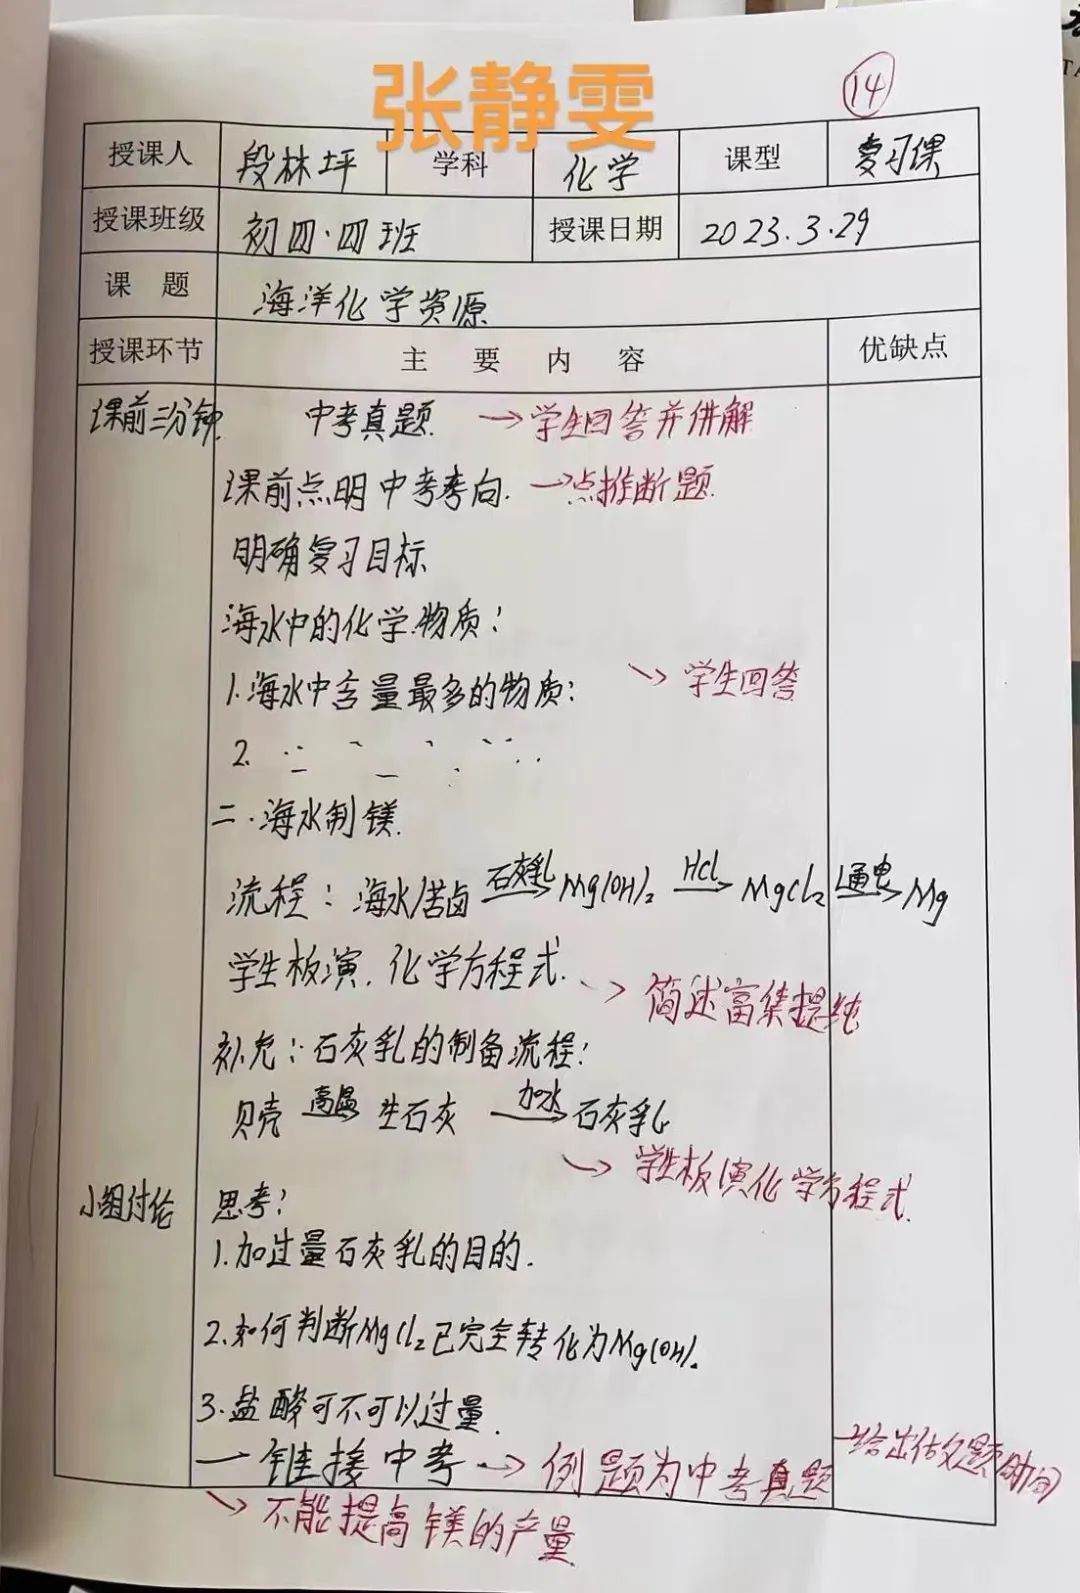 张静雯
14
授课人 段林坪 学科 化学 课型 复习课
授课班级 初四·四班 授课日期 2023.3.29
课 题 海洋化学资源
授课环节 主 要 内 容 优缺点
课前三分钟 中考真题 → 学生回答并讲解
课前点明中考考向. → 点推断题.
明确复习目标
海水中的化学物质:
1.海水中含量最多的物质: → 学生回答
2.
二.海水制镁.
流程: 海水/苦卤 石灰乳→ Mg(OH)₂ HCl→ MgCl₂ 通电→ Mg
学生板演.化学方程式. → 简述富集提纯
补充:石灰乳的制备流程:
贝壳 高温→ 生石灰 加水→ 石灰乳
→ 学生板演化学方程式.
小组讨论 思考:
1.加过量石灰乳的目的.
2.如何判断MgCl₂已完全转化为Mg(OH)₂
3.盐酸可不可以过量.
一 链接中考 → 例题为中考真题 → 给出 题时间
→ 不能提高镁的产量